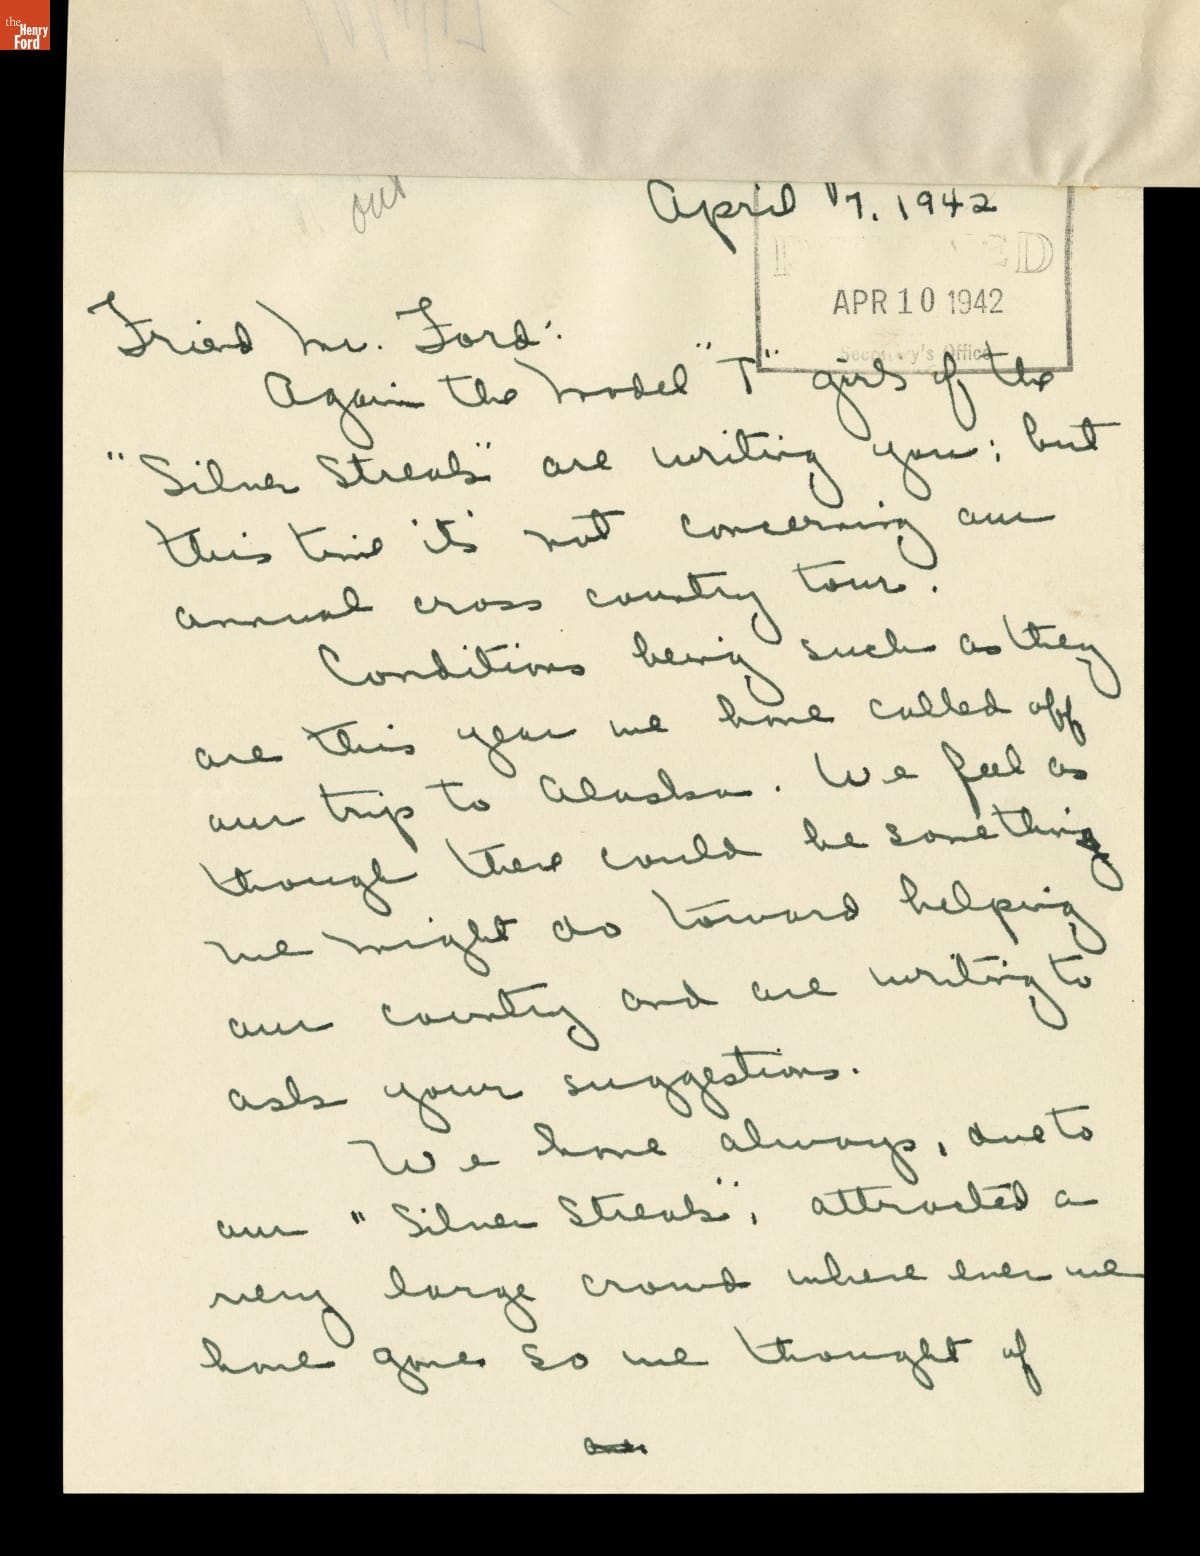 the
Henry
Ford
out
April 7, 1942
RECEIVED
APR 10 1942
Secretary's Office
Friend Mr. Ford:
Again the Model "T" girls of the
"Silver Streak" are writing you; but
this time it's not concerning our
annual cross country tour.
Conditions being such as they
are this year we have called off
our trip to Alaska. We feel as
though there could be something
we might do toward helping
our country and are writing to
ask your suggestions.
We have always, due to
our "Silver Streak", attracted a
very large crowd where ever we
have gone so we thought of